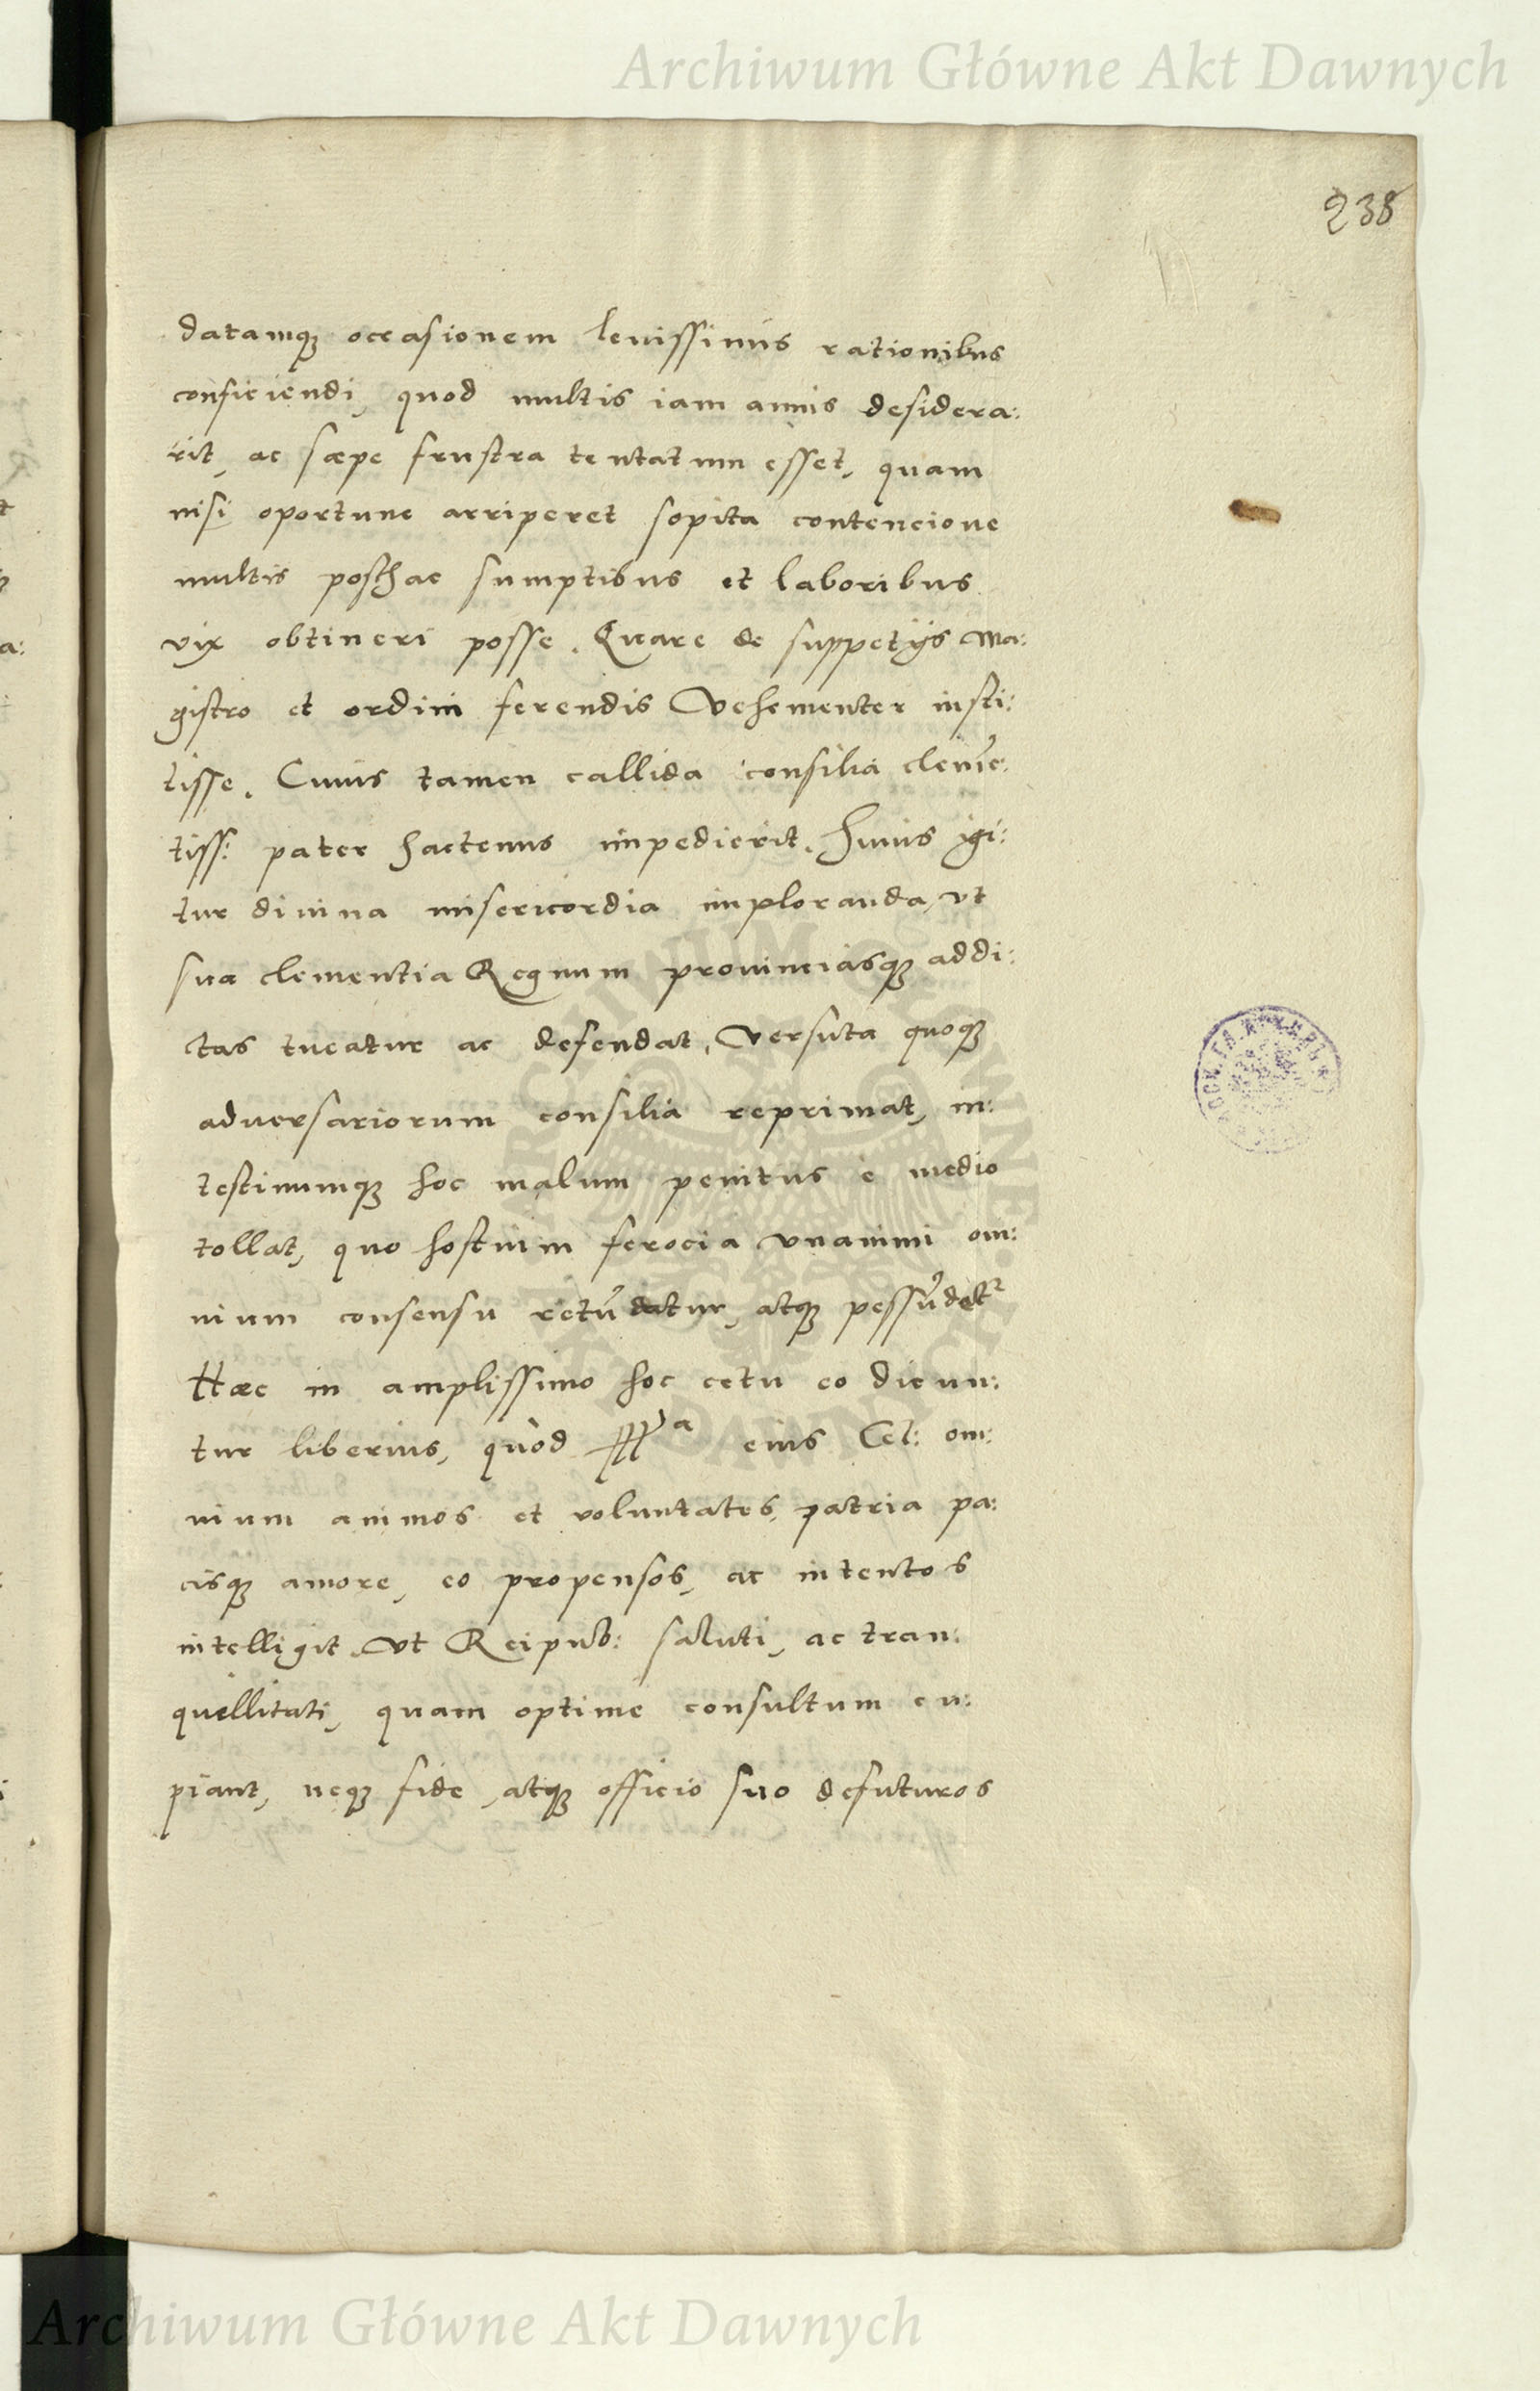 Archiwum Główne Akt Dawnych
238
datamqꝫ occasionem leuissimis rationibus
conficiendi, quod multis iam annis desidera:
rit, ac sæpe frustra tentatum esset, quam
nisi oportune arriperet sopita contencione
multis posthac sumptibus et laboribus
vix obtineri posse. Quare de suppetijs Ma:
gistro et ordini ferendis Vehementer insti:
tisse. Cuius tamen callida consilia clemē:
tiss: pater hactenus impedierit. Huius igi:
tur diuina misericordia imploranda, vt
sua clementia Regnum prouinciasqꝫ addi:
ctas tueatur ac defendat, Versuta quoqꝫ
aduersariorum consilia reprimat, in:
testinumqꝫ hoc malum penitus e medio
tollat, quo hostium ferocia vnanimi om:
nium consensu retūdatur, atqꝫ pessūdetʳ
Hæc in amplissimo hoc cetu eo dicun:
tur liberius, quòd Mᵃ eius Cel: om:
nium animos et voluntates, patria pa:
cisqꝫ amore, eo propensos, ac intentos
intelligit, Vt Reipub: saluti, ac tran:
quillitati, quam optime consultum cu:
piant, neqꝫ fide, atqꝫ officio suo defuturos
Archiwum Główne Akt Dawnych